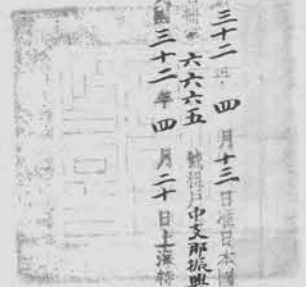 三十二年四月十三日准日本
六六六五號租戶中支那振興
三十二年四月二十日上海特